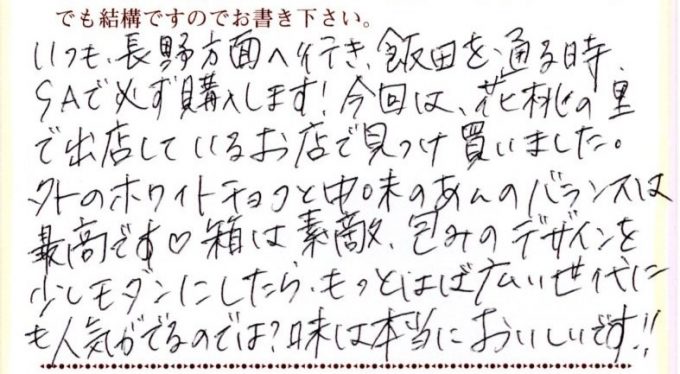 でも結構ですのでお書き下さい。
いつも、長野方面へ行き、飯田を通る時、
SAで必ず購入します！今回は、花桃の里
で出店しているお店で見つけ買いました。
外のホワイトチョコと中味のあんのバランスは
最高です♡箱は素敵、包みのデザインを
少しモダンにしたら、もっとはば広い世代に
も人気がでるのでは？味は本当においしいです!!